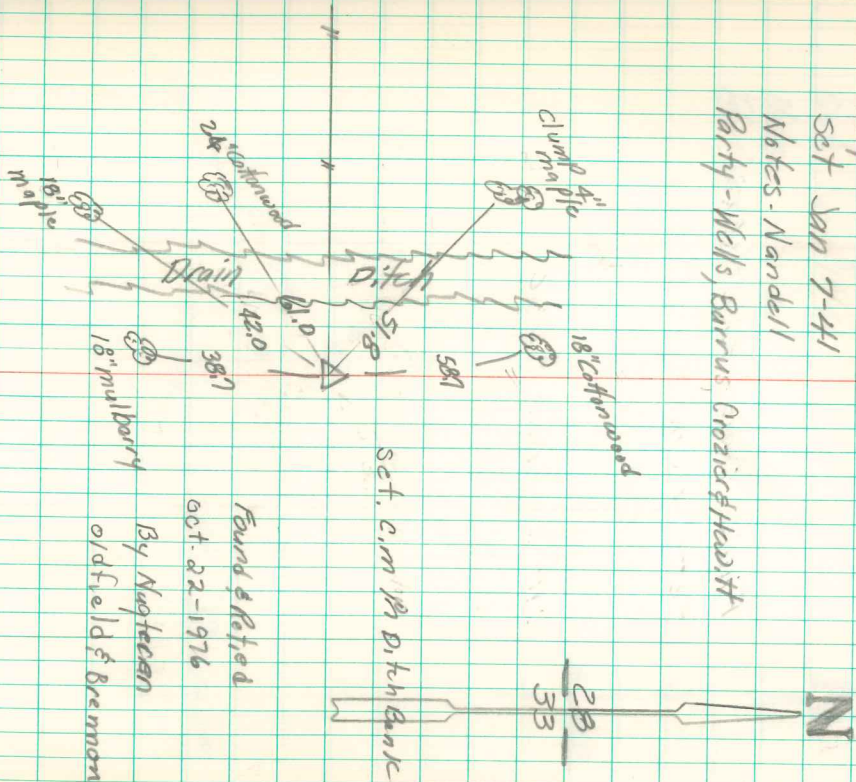 Set Jan 7-41
Notes-Nandell
Party-Wells, Burrus, Crozier & Hewitt
N
28
33
clump 4"
maple
18" Cottonwood
24" Cottonwood
18"
maple
18" mulbarry
Drain Ditch
51.8
58.7
61.0
42.0
38.7
Set. C.M in Ditch Bank
Found & Retied
Oct-22-1976
By Nugteren
oldfield & Brennon